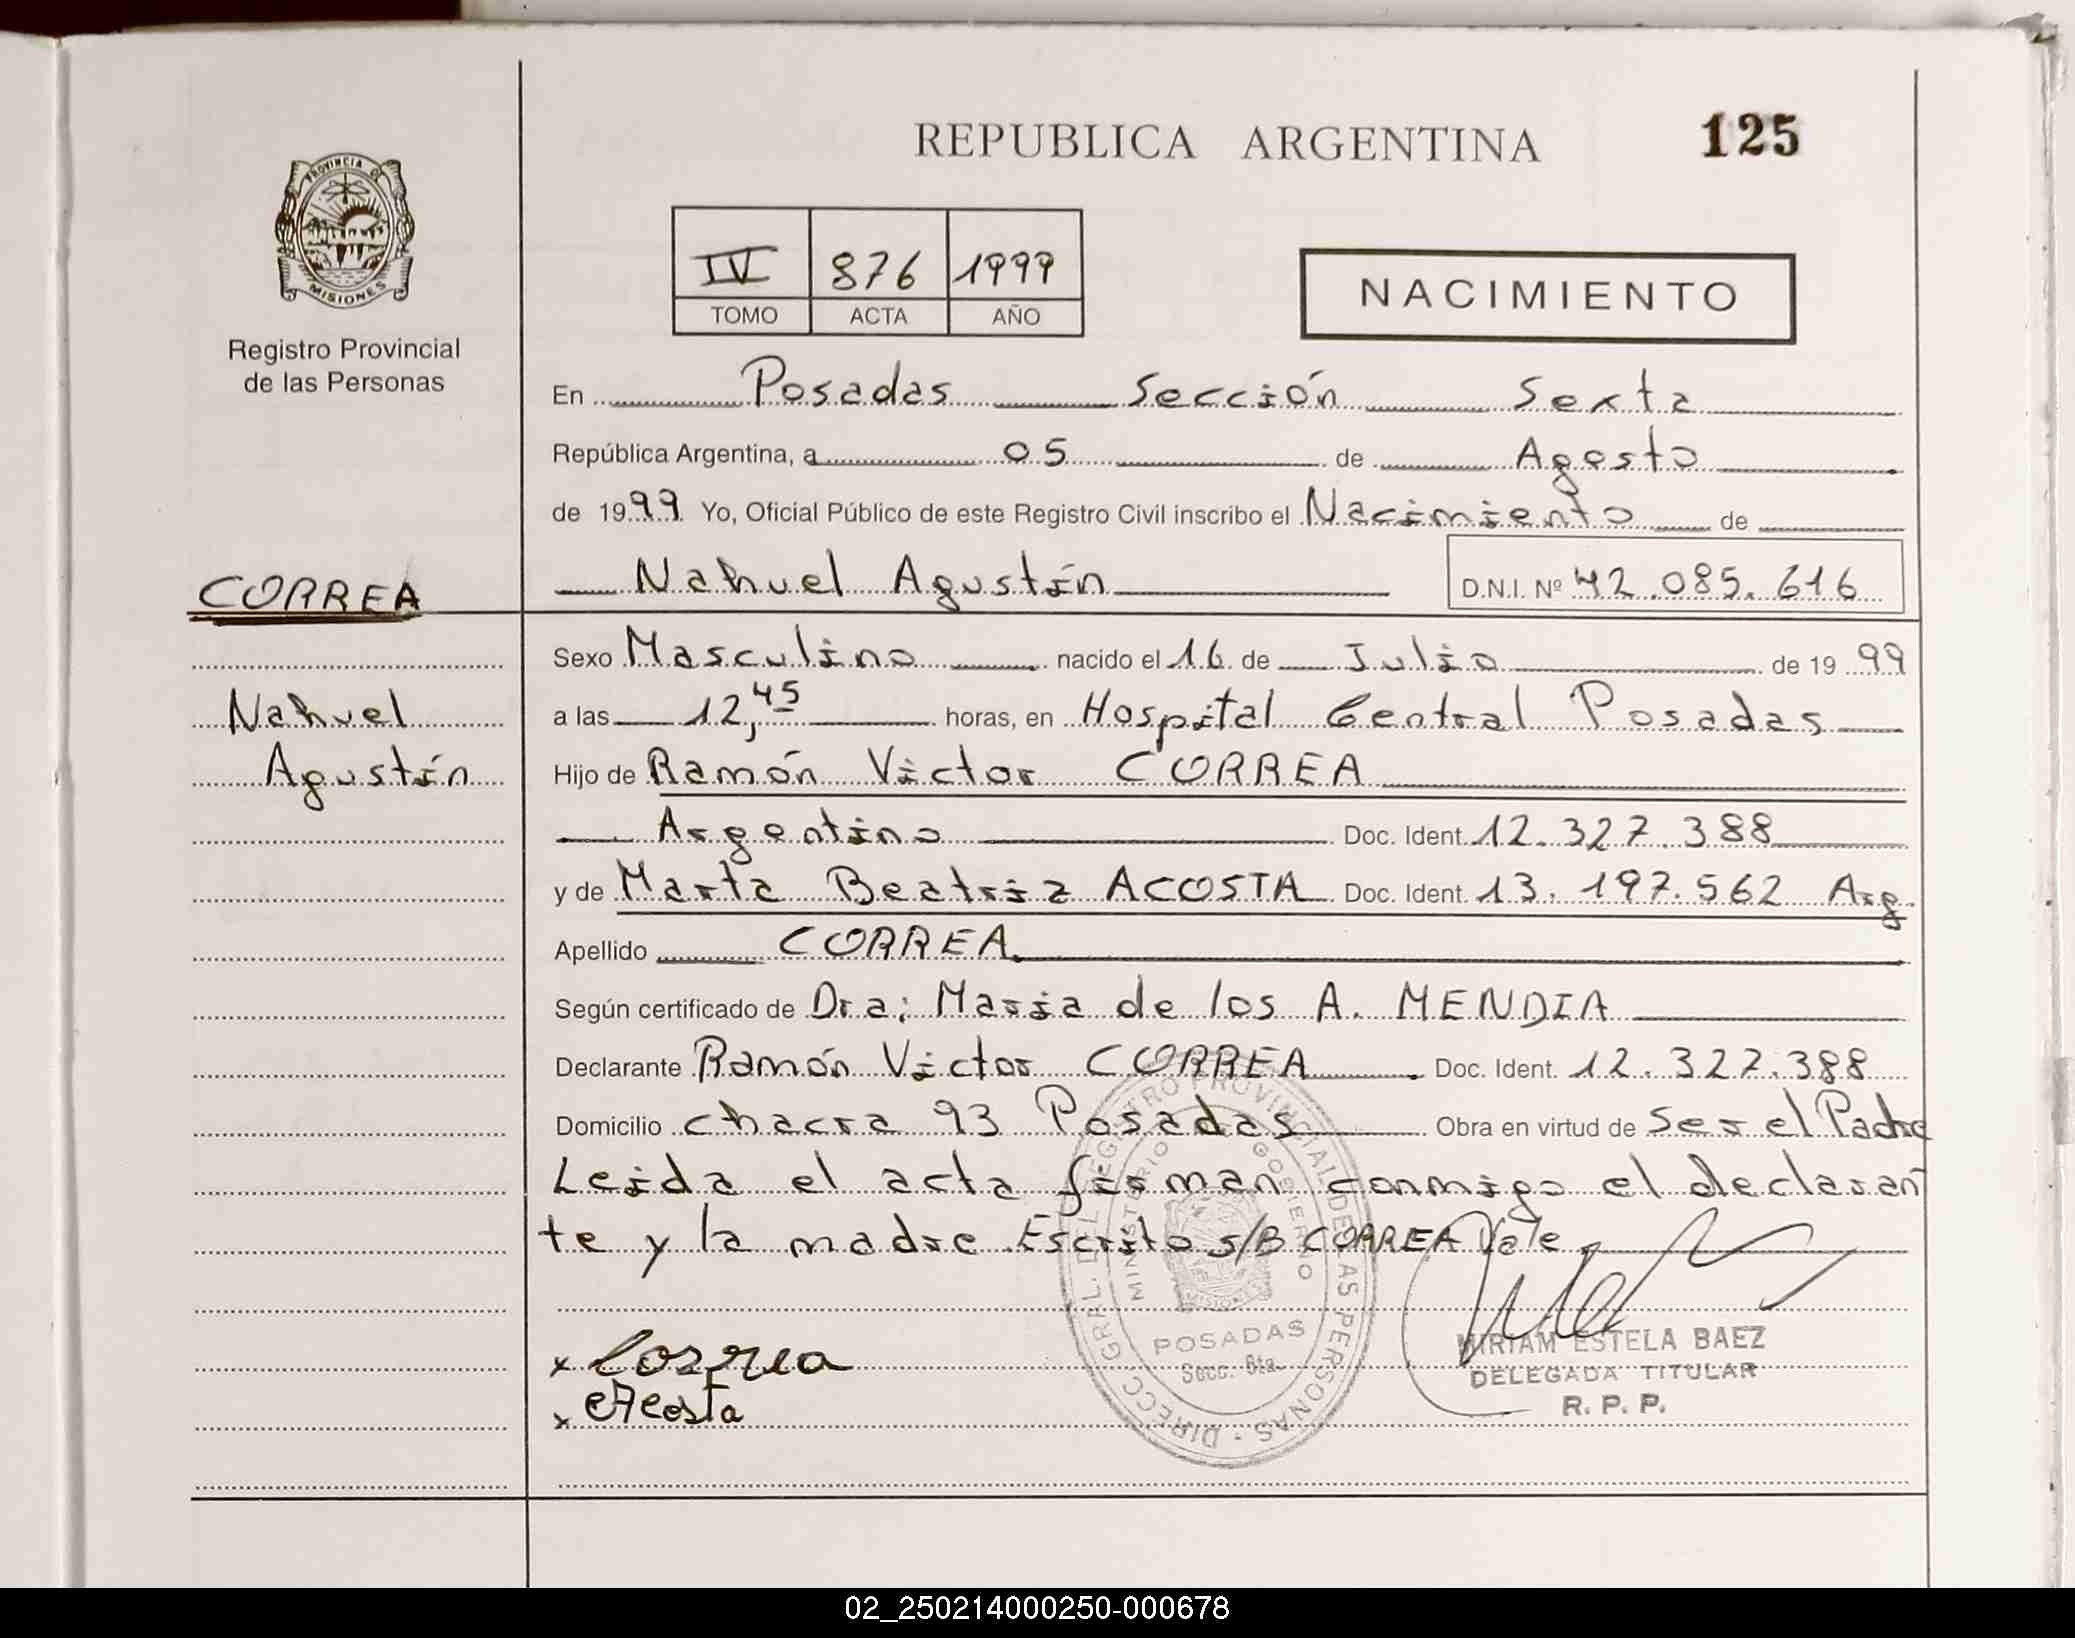 REPUBLICA ARGENTINA
125
PROVINCIA DE
MISIONES
Registro Provincial
de las Personas
IV 876 1999
TOMO ACTA AÑO
NACIMIENTO
En Posadas Sección Sexta
República Argentina, a 05 de Agosto
de 1999 Yo, Oficial Público de este Registro Civil inscribo el Nacimiento de
CORREA
Nahuel Agustín
D.N.I. Nº 42.085.616
Nahuel
Agustín
Sexo Masculino nacido el 16 de Julio de 1999
a las 12,45 horas, en Hospital Central Posadas
Hijo de Ramón Victor CORREA
Argentino Doc. Ident. 12.327.388
y de Marta Beatriz ACOSTA Doc. Ident. 13.197.562 Arg.
Apellido CORREA
Según certificado de Dra: Maria de los A. MENDIA
Declarante Ramón Victor CORREA Doc. Ident. 12.327.388
Domicilio chacra 93 Posadas Obra en virtud de Ser el Padre
Leida el acta firman conmigo el declaran
te y la madre Escrito s/B CORREA Vale
x Correa
x Acosta
DIRECC GRAL. DEL REGISTRO PROVINCIAL DE LAS PERSONAS
MINISTERIO GOBIERNO
MISIONES
POSADAS
Secc. 6ta.
MIRIAM ESTELA BAEZ
DELEGADA TITULAR
R. P. P.
02_250214000250-000678